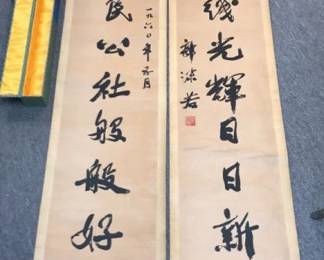 线光輝日日新
郭沫若
民公社般般好
一九六〇年六月